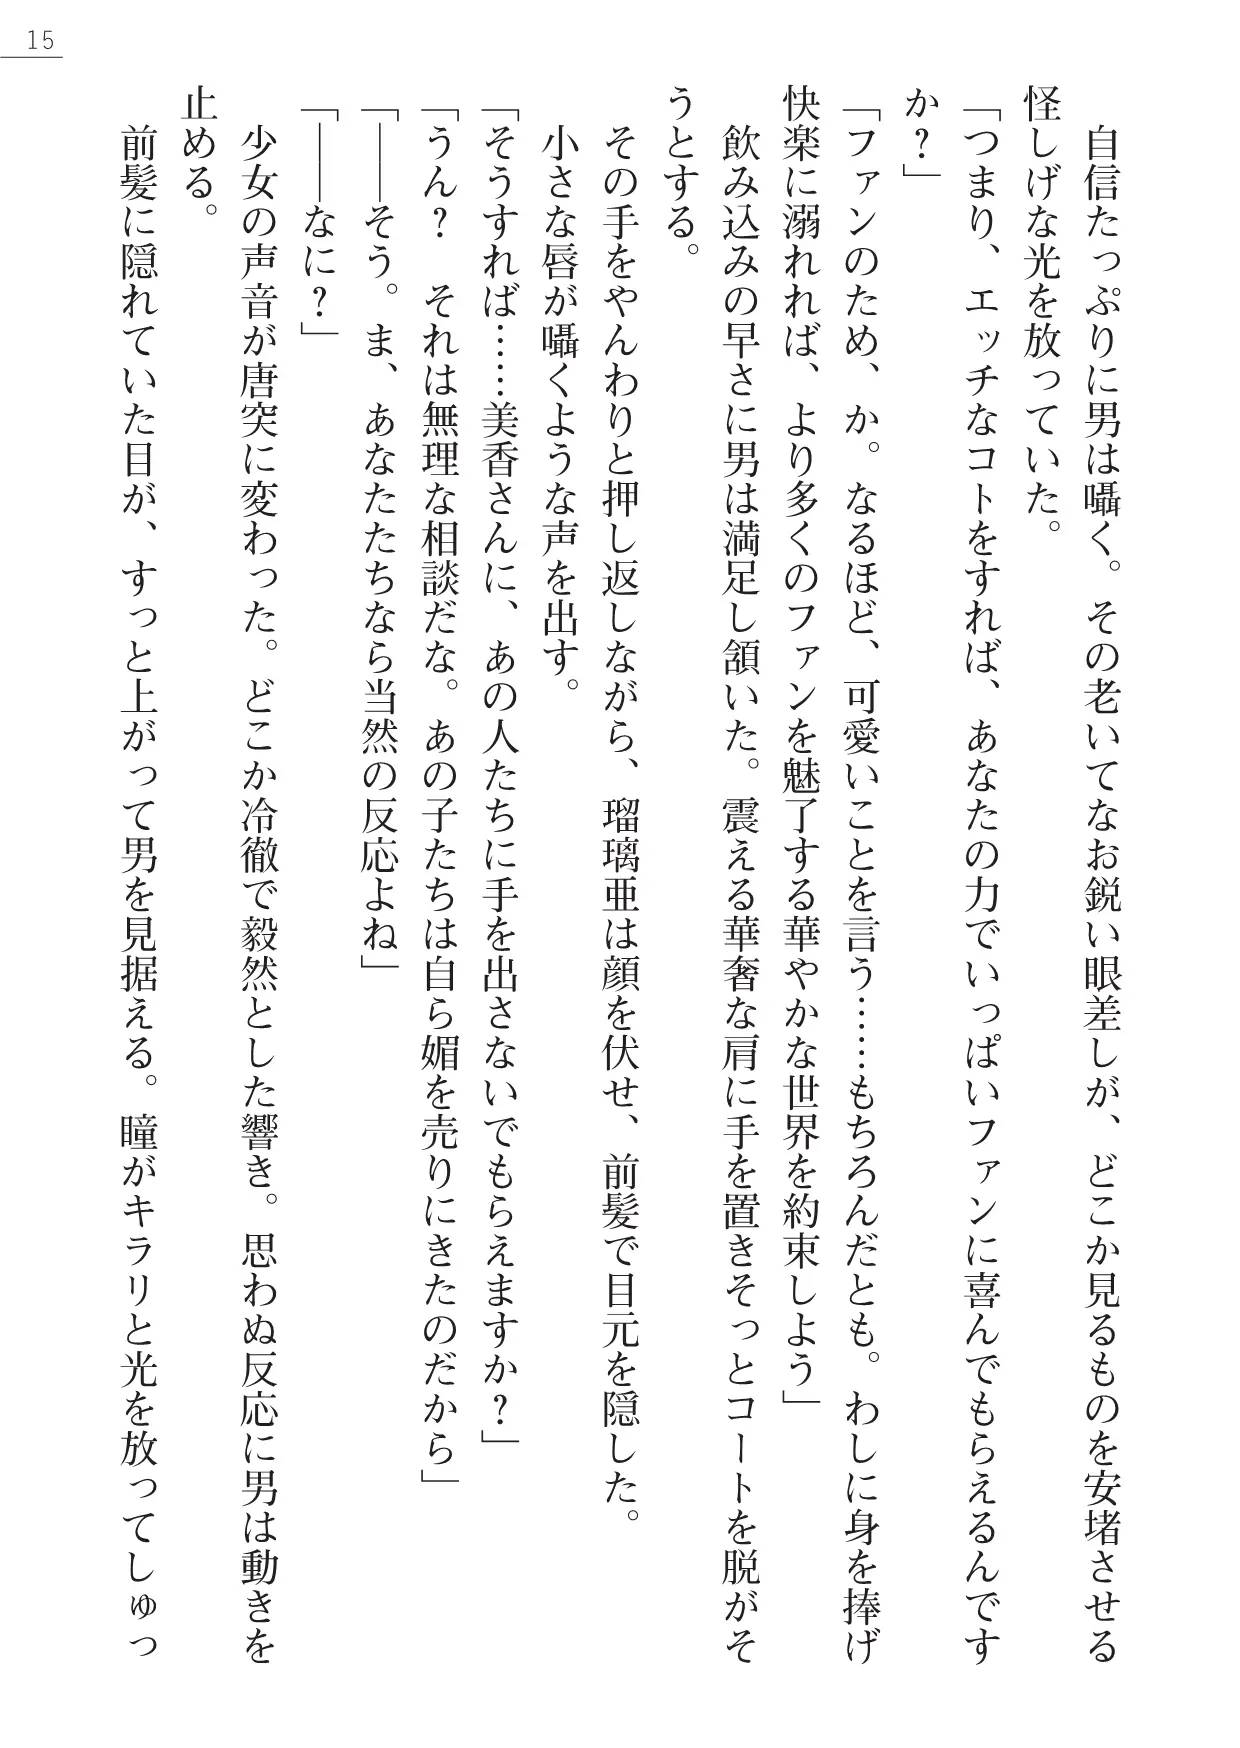 15
自信たっぷりに男は囁く。その老いてなお鋭い眼差しが、どこか見るものを安堵させる
怪しげな光を放っていた。
「つまり、エッチなコトをすれば、あなたの力でいっぱいファンに喜んでもらえるんです
か？」
「ファンのため、か。なるほど、可愛いことを言う……もちろんだとも。わしに身を捧げ
快楽に溺れれば、より多くのファンを魅了する華やかな世界を約束しよう」
飲み込みの早さに男は満足し頷いた。震える華奢な肩に手を置きそっとコートを脱がそ
うとする。
その手をやんわりと押し返しながら、瑠璃亜は顔を伏せ、前髪で目元を隠した。
小さな唇が囁くような声を出す。
「そうすれば……美香さんに、あの人たちに手を出さないでもらえますか？」
「うん？　それは無理な相談だな。あの子たちは自ら媚を売りにきたのだから」
「――そう。ま、あなたたちなら当然の反応よね」
「――なに？」
少女の声音が唐突に変わった。どこか冷徹で毅然とした響き。思わぬ反応に男は動きを
止める。
前髪に隠れていた目が、すっと上がって男を見据える。瞳がキラリと光を放ってしゅっ